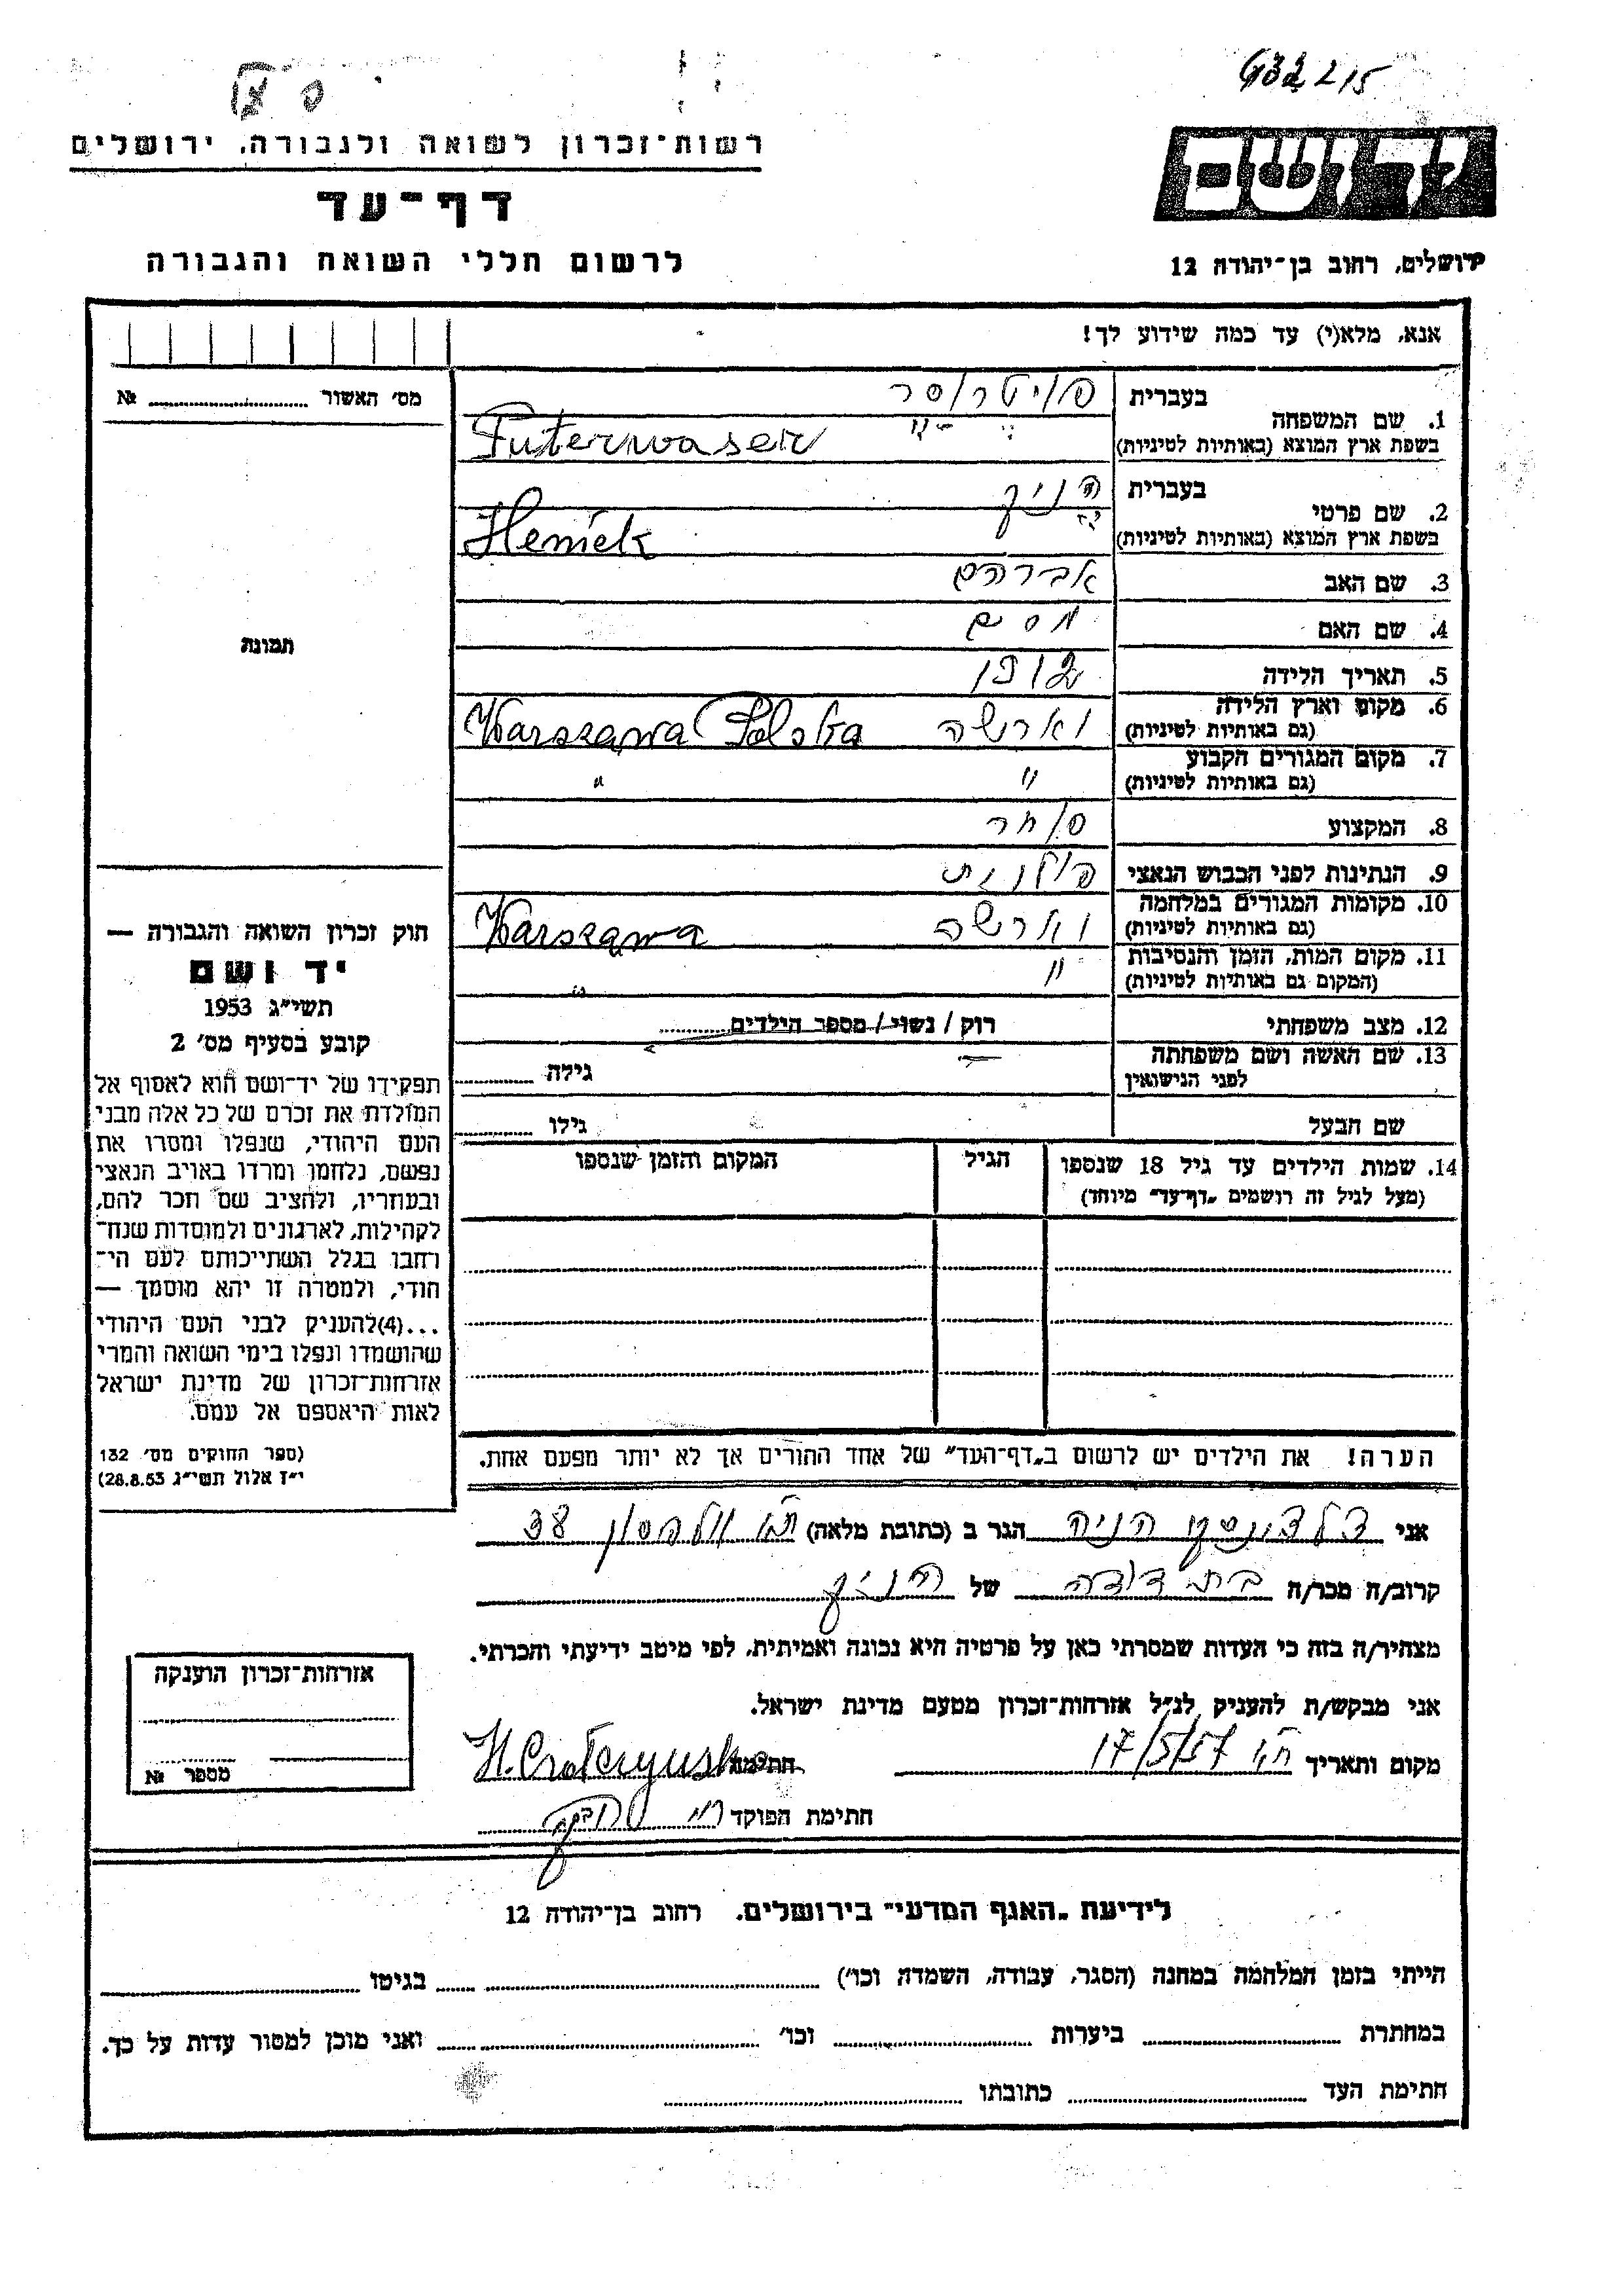 רשות־זכרון לשואה ולגבורה, ירושלים
דף־עד
לרשום חללי השואה והגבורה
ירושלים, רחוב בן־יהודה 12
אנא, מלא(י) עד כמה שידוע לך!
מס׳ האשור № 
1. שם המשפחה
בעברית
בשפת ארץ המוצא (באותיות לטיניות)
Futerwaser
2. שם פרטי
בעברית הניק
בשפת ארץ המוצא (באותיות לטיניות) Heniek
3. שם האב אברהם
4. שם האם
5. תאריך הלידה
6. מקום וארץ הלידה
(גם באותיות לטיניות) וארשה Warszawa Polska
7. מקום המגורים הקבוע
(גם באותיות לטיניות) " "
8. המקצוע סוחר
9. הנתינות לפני הכבוש הנאצי פולנית
10. מקומות המגורים במלחמה
(גם באותיות לטיניות) וארשה Warszawa
11. מקום המות, הזמן והנסיבות
(המקום גם באותיות לטיניות) " "
12. מצב משפחתי רוק / נשוי / מספר הילדים
13. שם האשה ושם משפחתה
לפני הנישואין גילה
שם הבעל גילו
14. שמות הילדים עד גיל 18 שנספו
(מעל לגיל זה רושמים „דף־עד״ מיוחד)
הגיל
המקום והזמן שנספו
הערה! את הילדים יש לרשום ב„דף־העד״ של אחד ההורים אך לא יותר מפעם אחת.
תמונה
חוק זכרון השואה והגבורה —
יד ושם
תשי״ג 1953
קובע בסעיף מס׳ 2
תפקידו של יד־ושם הוא לאסוף אל
המולדת את זכרם של כל אלה מבני
העם היהודי, שנפלו ומסרו את
נפשם, נלחמו ומרדו באויב הנאצי
ובעוזריו, ולהציב שם וזכר להם,
לקהילות, לארגונים ולמוסדות שנח־
רבו בגלל השתייכותם לעם הי־
הודי, ולמטרה זו יהא מוסמך —
...(4)להעניק לבני העם היהודי
שהושמדו ונפלו בימי השואה והמרי
אזרחות־זכרון של מדינת ישראל
לאות היאספם אל עמם.
(ספר החוקים מס׳ 132
י״ז אלול תשי״ג 28.8.53)
אני הניה הגר ב (כתובת מלאה) 38
קרוב/ה מכר/ה בת דודה של הניק
מצהיר/ה בזה כי העדות שמסרתי כאן על פרטיה היא נכונה ואמיתית, לפי מיטב ידיעתי והכרתי.
אני מבקש/ת להעניק לנ״ל אזרחות־זכרון מטעם מדינת ישראל.
מקום ותאריך 17/5/57 חתימה
חתימת הפוקד
אזרחות־זכרון הוענקה
מספר №
לידיעת „האגף המדעי״ בירושלים, רחוב בן־יהודה 12
הייתי בזמן המלחמה במחנה (הסגר, עבודה, השמדה וכו׳) בגיטו
במחתרת ביערות וכו׳ ואני מוכן למסור עדות על כך.
חתימת העד כתובתו